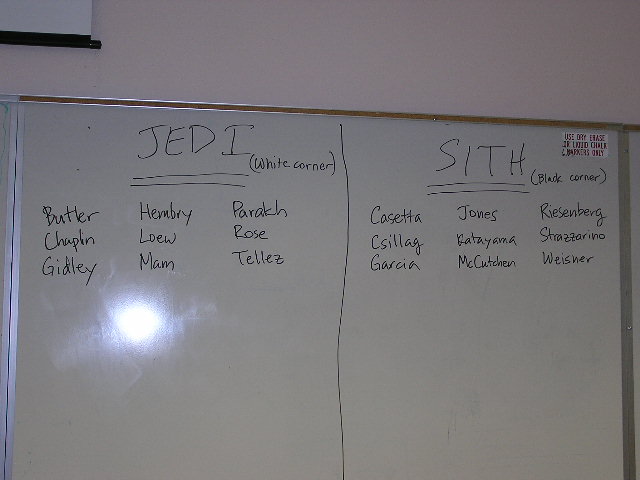 JEDI
(White corner)
Butler Hembry Parakh
Chapln Loew Rose
Gidley Mam Tellez
SITH
(Black corner)
Casetta Jones Riesenberg
Csillag Katayama Strazzarino
Garcia McCutchen Weisner
USE DRY ERASE
OR LIQUID CHALK
MARKERS ONLY